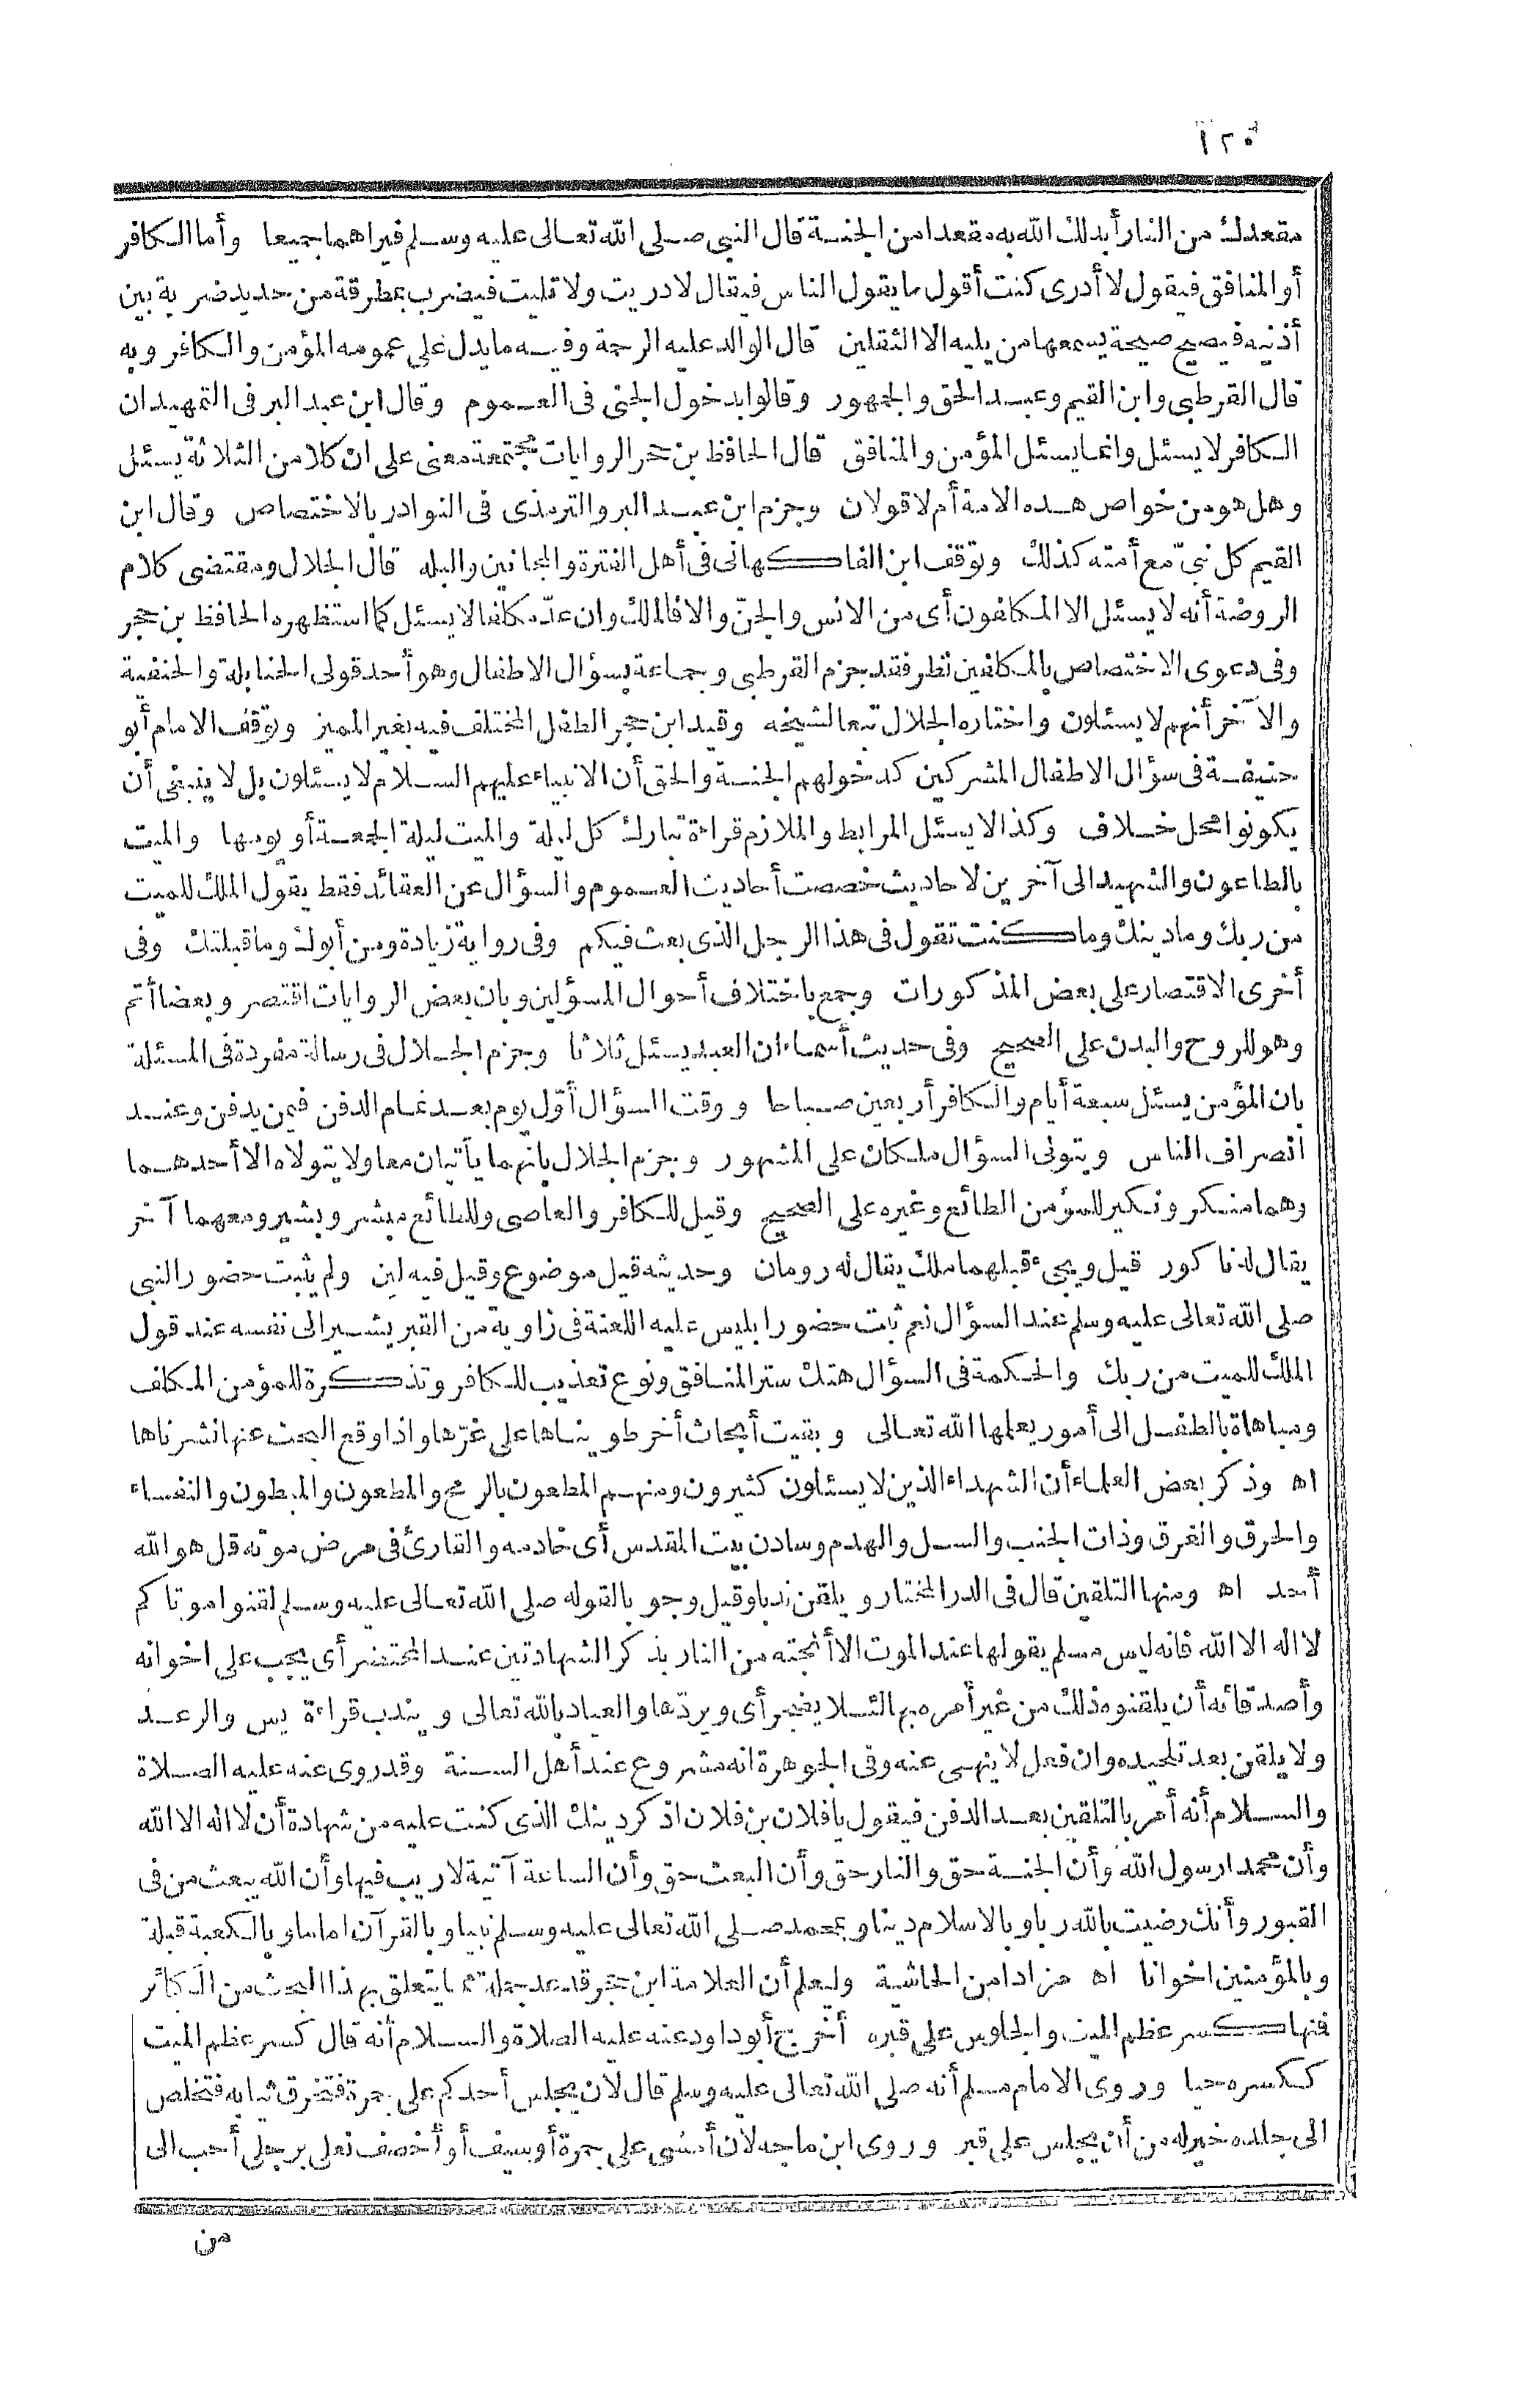 مقعدك من النار أبدلك الله به مقعدا من الجنة قال النبي صلى الله تعالى عليه وسلم فيراهما جميعا وأما الكافر
أو المنافق فيقول لا أدرى كنت أقول ما يقول الناس فيقال لا دريت ولا تليت فيضرب بمطرقة من حديد ضربة بين
أذنيه فيصيح صيحة يسمعها من يليه الا الثقلين قال الوالد عليه الرحمة وفيه ما يدل على عمومه المؤمن والكافر وبه
قال القرطبي وابن القيم وعبد الحق والجمهور وقالوا بدخول الجنى فى العموم وقال ابن عبد البر فى التمهيد ان
الكافر لا يسئل وانما يسئل المؤمن والمنافق قال الحافظ بن حجر الروايات مجتمعة معنى على ان كلا من الثلاثة يسئل
وهل هو من خواص هذه الامة أم لا قولان وجزم ابن عبد البر والترمذى فى النوادر بالاختصاص وقال ابن
القيم كل نبىّ مع أمته كذلك وتوقف ابن الفاكهانى فى أهل الفترة والمجانين والبله قال الجلال ومقتضى كلام
الروضة أنه لا يسئل الا المكلفون أى من الانس والجنّ والا فالملك وان عدّ مكلفا لا يسئل كما استظهره الحافظ بن حجر
وفى دعوى الاختصاص بالمكلفين نظر فقد جزم القرطبى وجماعة بسؤال الاطفال وهو أحد قولى الحنابلة والحنفية
والآخر أنهم لا يسئلون واختاره الجلال تبعا لشيخه وقيد ابن حجر الطفل المختلف فيه بغير المميز وتوقف الامام أبو
حنيفة فى سؤال الاطفال المشركين كدخولهم الجنة والحق أن الانبياء عليهم السلام لا يسئلون بل لا ينبغى أن
يكونوا محل خلاف وكذا لا يسئل المرابط والملازم قراءة تبارك كل ليلة والميت ليلة الجمعة أو يومها والميت
بالطاعون والشهيد الى آخرين لاحاديث خصصت أحاديث العموم والسؤال عن العقائد فقط يقول الملك للميت
من ربك وما دينك وما كنت تقول فى هذا الرجل الذى بعث فيكم وفى رواية زيادة ومن أبوك وما قبلتك وفى
أخرى الاقتصار على بعض المذكورات وجمع باختلاف أحوال المسؤلين وبان بعض الروايات اقتصر وبعضا أتم
وهو للروح والبدن على الصحيح وفى حديث أسماء ان العبد يسئل ثلاثا وجزم الجلال فى رسالة مفردة فى المسئلة
بان المؤمن يسئل سبعة أيام والكافر أربعين صباحا ووقت السؤال أوّل يوم بعد تمام الدفن فيمن يدفن وعند
انصراف الناس ويتولى السؤال ملكان على المشهور وجزم الجلال بانهما يأتيان معا ولا يتولاه الا أحدهما
وهما منكر ونكير للمؤمن الطائع وغيره على الصحيح وقيل للكافر والعاصى وللطائع مبشر وبشير ومعهما آخر
يقال له ناكور قيل ويجىء قبلهما ملك يقال له رومان وحديثه قيل موضوع وقيل فيه لين ولم يثبت حضور النبى
صلى الله تعالى عليه وسلم عند السؤال نعم ثبت حضور ابليس عليه اللعنة فى زاوية من القبر يشير الى نفسه عند قول
الملك للميت من ربك والحكمة فى السؤال هتك ستر المنافق ونوع تعذيب للكافر وتذكرة للمؤمن المكلف
ومباهاة بالطفل الى أمور يعلمها الله تعالى وبقيت أبحاث أخر طويناها على غرّها واذا وقع البحث عنها نشرناها
اه وذكر بعض العلماء أن الشهداء الذين لا يسئلون كثيرون ومنهم المطعون بالرمح والمطعون والمبطون والنفساء
والحرق والغرق وذات الجنب والسل والهدم وسادن بيت المقدس أى خادمه والقارئ فى مرض موته قل هو الله
أحد اه ومنها التلقين قال فى الدر المختار ويلقن ندبا وقيل وجوبا لقوله صلى الله تعالى عليه وسلم لقنوا موتاكم
لا اله الا الله فانه ليس مسلم يقولها عند الموت الا أنجته من النار بذكر الشهادتين عند المحتضر أى يجب على اخوانه
وأصدقائه أن يلقنوه ذلك من غير أمره بها لئلا يضجر أى ويردّها والعياذ بالله تعالى ويندب قراءة يس والرعد
ولا يلقن بعد تلحيده وان فعل لا ينهى عنه وفى الجوهرة انه مشروع عند أهل السنة وقد روى عنه عليه الصلاة
والسلام أنه أمر بالتلقين بعد الدفن فيقول يا فلان بن فلان اذكر دينك الذى كنت عليه من شهادة أن لا اله الا الله
وأن محمدا رسول الله وأن الجنة حق والنار حق وأن البعث حق وأن الساعة آتية لا ريب فيها وأن الله يبعث من فى
القبور وأنك رضيت بالله ربا وبالاسلام دينا وبمحمد صلى الله تعالى عليه وسلم نبيا وبالقرآن اماما وبالكعبة قبلة
وبالمؤمنين اخوانا اه مزادا من الحاشية وليعلم أن العلامة ابن حجر قد عد جملة مما يتعلق بهذا البحث من الكبائر
فمنها كسر عظم الميت والجلوس على قبره أخرج أبو داود عنه عليه الصلاة والسلام أنه قال كسر عظم الميت
ككسره حيا وروى الامام مسلم أنه صلى الله تعالى عليه وسلم قال لأن يجلس أحدكم على جمرة فتحرق ثيابه فتخلص
الى جلده خير له من أن يجلس على قبر وروى ابن ماجه لأن أمشى على جمرة أو سيف أو أخصف نعلى برجلى أحب الى
من